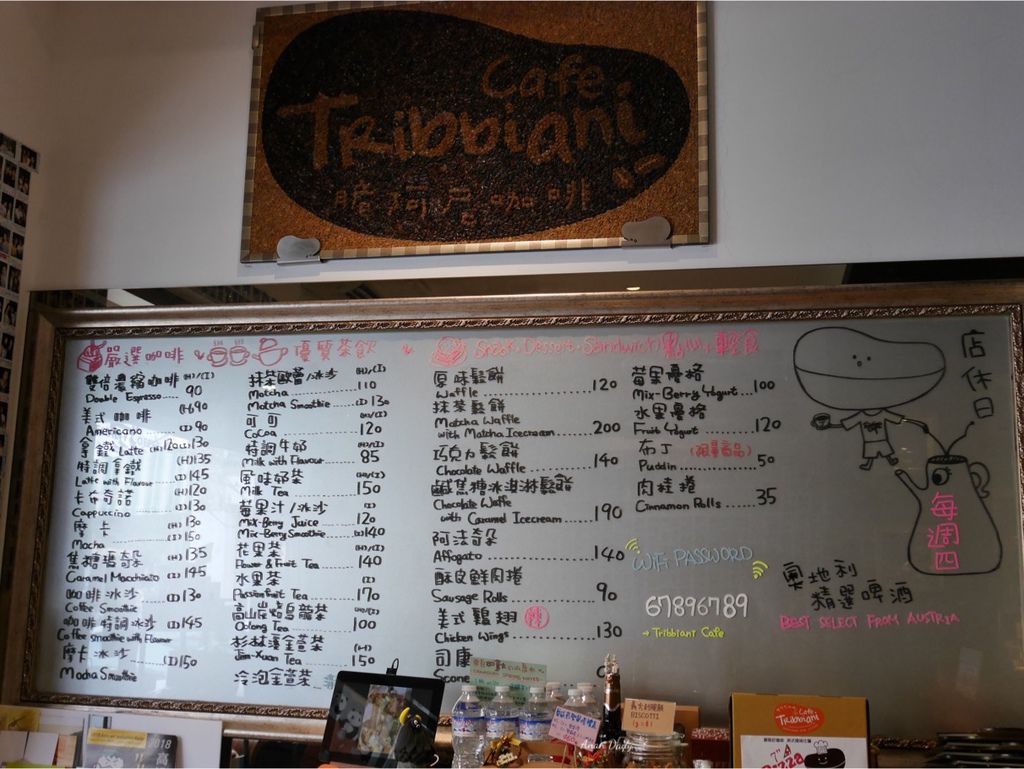 Cafe
Tribbiani
咖啡
嚴選咖啡
雙倍濃縮咖啡 (H)/(I)
Double Espresso..... 90
美式咖啡 (H)90
Americano (I) 90
拿鐵 Latte (H)120 (I)130
特調拿鐵 (H)135
Latte with Flavour (I)145
卡布奇諾 (H)120
Cappuccino (I)130
摩卡 (H)130
Mocha (I)150
焦糖瑪奇朵 (H)135
Caramel Macchiato (I)145
咖啡冰沙
Coffee Smoothie (I)130
咖啡特調冰沙 (I)145
Coffee smoothie with Flavour
摩卡冰沙 (I)150
Mocha Smoothie
優質茶飲
抹茶歐蕾/冰沙 (H)/(I)
Matcha 110
Matcha Smoothie (I)130
可可 (H)/(I)
Cocoa 120
特調牛奶 (H)/(I)
Milk with Flavour 85
風味奶茶 (H)/(I)
Milk Tea 150
莓果汁/冰沙 (I)
Mix-Berry Juice 120
Mix-Berry Smoothie (I)140
花果茶 (H)/(I)
Flower & Fruit Tea 140
水果茶 (I)
Passionfruit Tea 170
高山岩烏龍茶
Oolong Tea 100
杉林溪金萱茶 (H)
Jin-Xuan Tea 150
冷泡金萱茶
Snack, Dessert, Sandwich/點心, 輕食
原味鬆餅
Waffle 120
抹茶鬆餅
Matcha Waffle
with Matcha Icecream 200
巧克力鬆餅
Chocolate Waffle 140
鹹焦糖冰淇淋鬆餅
Chocolate Waffle
with Caramel Icecream 190
阿法奇朵
Affogato 140
酥皮鮮肉捲
Sausage Rolls 90
美式雞翅 辣
Chicken Wings 130
司康
Scone
莓果優格
Mix-Berry Yogurt 100
水果優格
Fruit Yogurt 120
布丁 (限量商品)
Puddin 50
肉桂捲
Cinnamon Rolls 35
WiFi PASSWORD
67896789
→ Tribbiani Cafe
店休日
每週四
奧地利
精選啤酒
BEST SELECT FROM AUSTRIA
義大利脆餅
BISCOTTI
Cafe
Tribbiani
Pizza
2018
Anan Daily